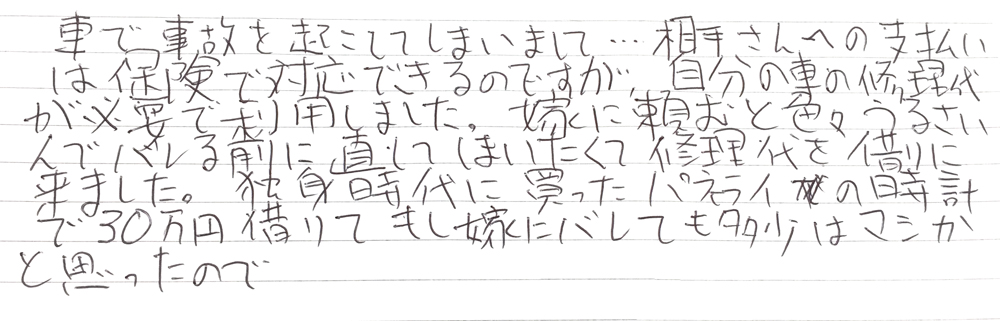 車で事故を起こしてしまいまして…相手さんへの支払い
は保険で対応できるのですが、自分の車の修理代
が必要で利用しました。嫁に頼むと色々うるさい
んでバレる前に直してしまいたくて修理代を借りに
来ました。独身時代に買ったパネライの時計
で30万円借りてもし嫁にバレても多少はマシか
と思ったので